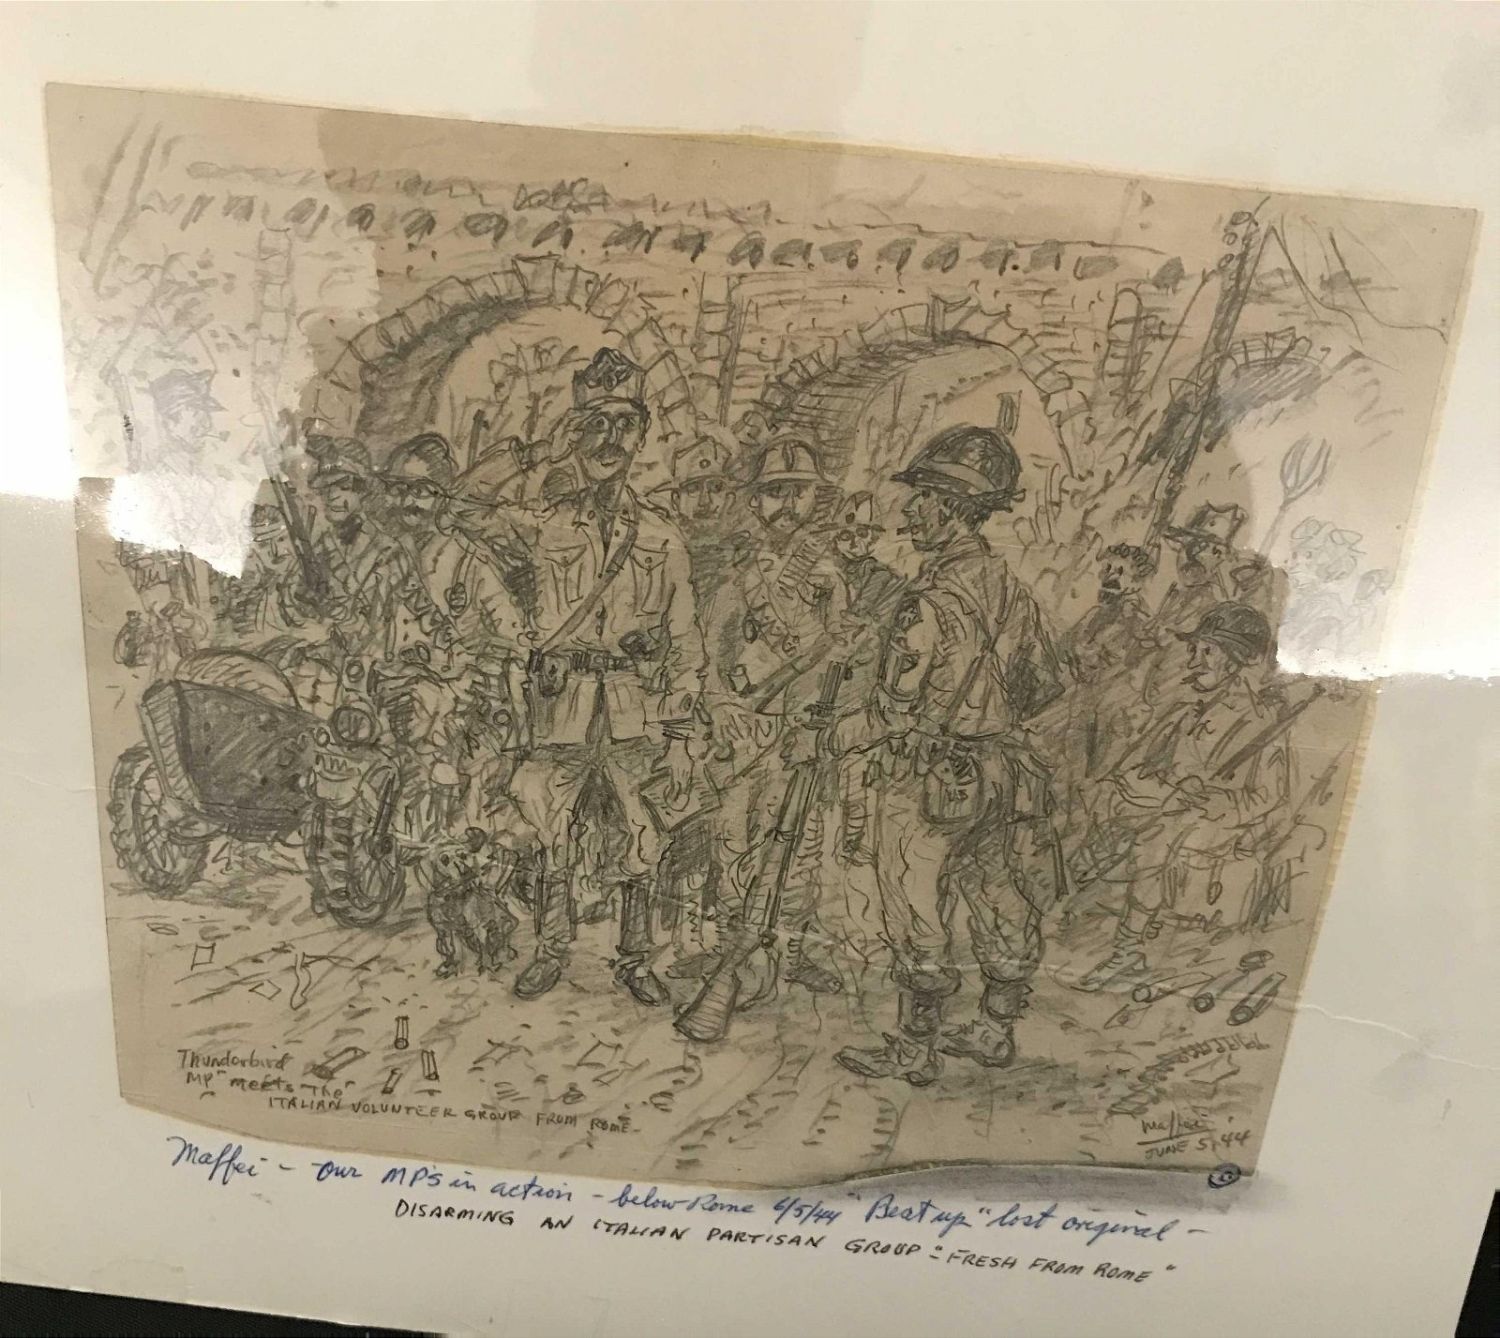 Thunderbird
MP "meets "The"
ITALIAN VOLUNTEER GROUP FROM ROME-
Maffei
JUNE 5, 44
Maffei - our MP's in action - below Rome 6/5/44 "Beat up" lost original -
DISARMING AN ITALIAN PARTISAN GROUP - "FRESH FROM ROME"